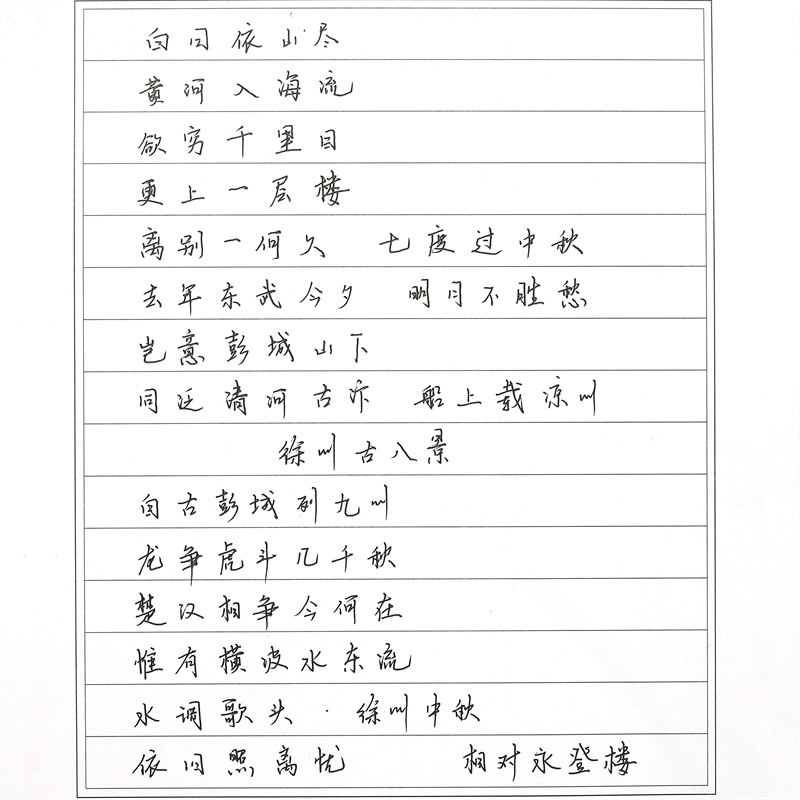 白日依山尽
黄河入海流
欲穷千里目
更上一层楼
离别一何久 七度过中秋
去年东武今夕 明月不胜愁
岂意彭城山下
同泛清河古汴 船上载凉州
徐州古八景
自古彭城列九州
龙争虎斗几千秋
楚汉相争今何在
惟有横波水东流
水调歌头·徐州中秋
依旧照离忧 相对永登楼